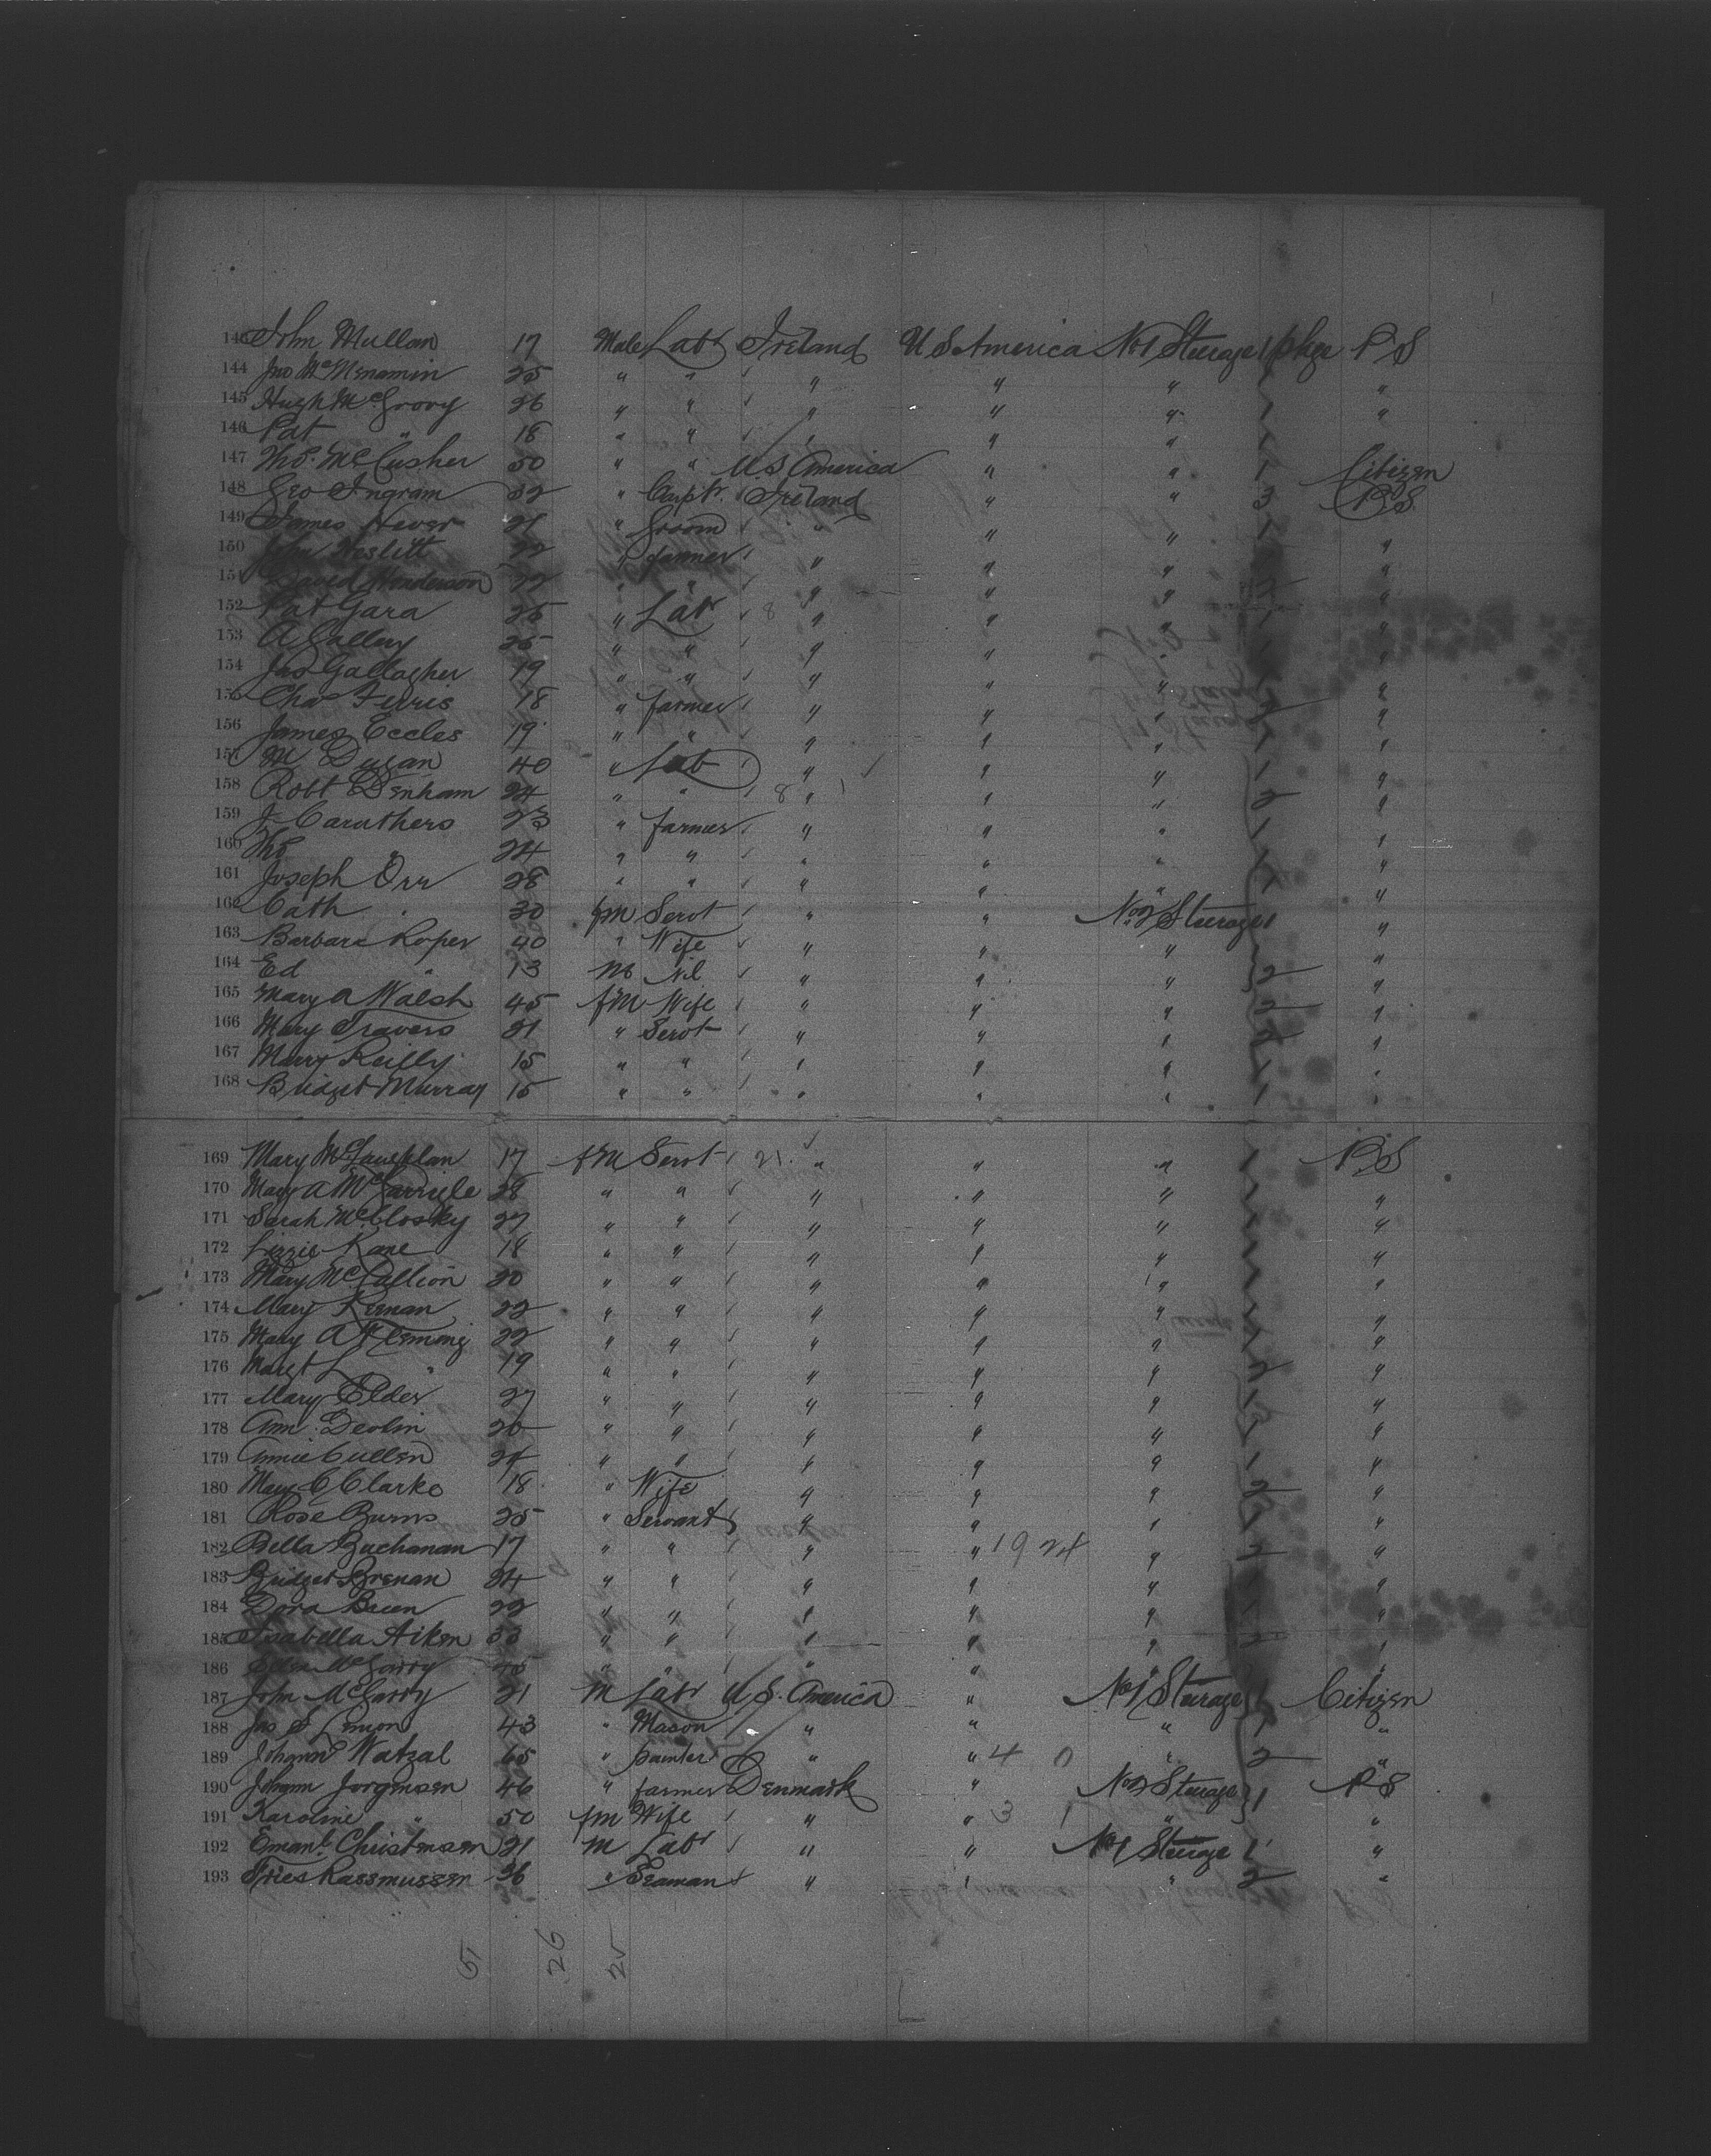 143 John Mullan 17 Male Labr Ireland U S America No 1 Steerage 1 pkge P S
144 Jno McMenamin 25 " " " " " 1 "
145 Hugh McGrory 26 " " " " " 1 "
146 Pat " 18 " " " " " 1
147 Tho. McCusher 50 " " U.S America " " 1 Citizen
148 Geo Ingram 32 " Carpt. Ireland " " 3 P.S.
149 James Hever 21 " Groom " " " 1 "
150 John Neslitt 22 " farmer " " " "
151 David Henderson 22 " " " " " "
152 Pat Gara 25 " Labr 8 " " " "
153 A Gallery 25 " " " " " "
154 Jas Gallagher 19 " " " " " "
155 Chas Ferris 18 " farmer " " " 2 "
156 James Eccles 19 " " " " " 1 "
157 M Dugan 40 " Lab " " " 1 "
158 Robt Denham 24 " " 8 " " " 2 "
159 J Caruthers 23 " farmer " " " 1 "
160 Tho " 24 " " " " " 1 "
161 Joseph Orr 28 " " " " " 1 "
162 Cath " 30 fm Servt " " No 2 Steerage 1 "
163 Barbara Roper 40 " Wife " " " "
164 Ed " 13 m Nil " " " 2 "
165 Mary A Walsh 45 fm Wife " " " 2 "
166 Mary Travers 21 " Servt " " " 2 "
167 Mary Reilly 15 " " " " " 1 "
168 Bridget Murray 15 " " " " " 1 "
169 Mary McLaughlan 17 fm Servt 21 " " " 1 P.S
170 Mary A McGarrigle 28 " " " " " 1 "
171 Sarah McClosky 27 " " " " " 1 "
172 Lizzie Kane 18 " " " " " 1 "
173 Mary McCallion 20 " " " " " 1 "
174 Mary Keenan 22 " " " " " 1 "
175 Mary A Fleming 22 " " " " " 1 "
176 Margt L " 19 " " " " " 2 "
177 Mary Elder 27 " " " " " 1 "
178 Ann Devlin 20 " " " " " "
179 Annie Cullen 24 " " " " " 1 "
180 Mary C Clarke 18 " Wife " " " 2 "
181 Rose Burns 25 " Servant " " " 1 "
182 Bella Buchanan 17 " " " " 19 24 " 2 "
183 Bridget Brenan 24 " " " " " "
184 Dora Breen 22 " " " " " 1 "
185 Isabella Aiken 33 " " " " " 2 "
186 Ellen McGarry " " " " " "
187 John McGarry 21 m Labr U.S. America " No 1 Steerage 1 Citizen
188 Jas S Lemon 43 " Mason " " " 1 "
189 Johann Watzal 65 " painter " " 4 0 " 2 "
190 Johann Jorgensen 46 " farmer Denmark " No 2 Steerage 1 P S
191 Karoline " 50 fm Wife " " 3 1 " "
192 Emanl. Christensen 21 m Labr " " No 1 Steerage 1 "
193 Fries Rassmussen 36 " Seaman " " " 2 "
51 26 25